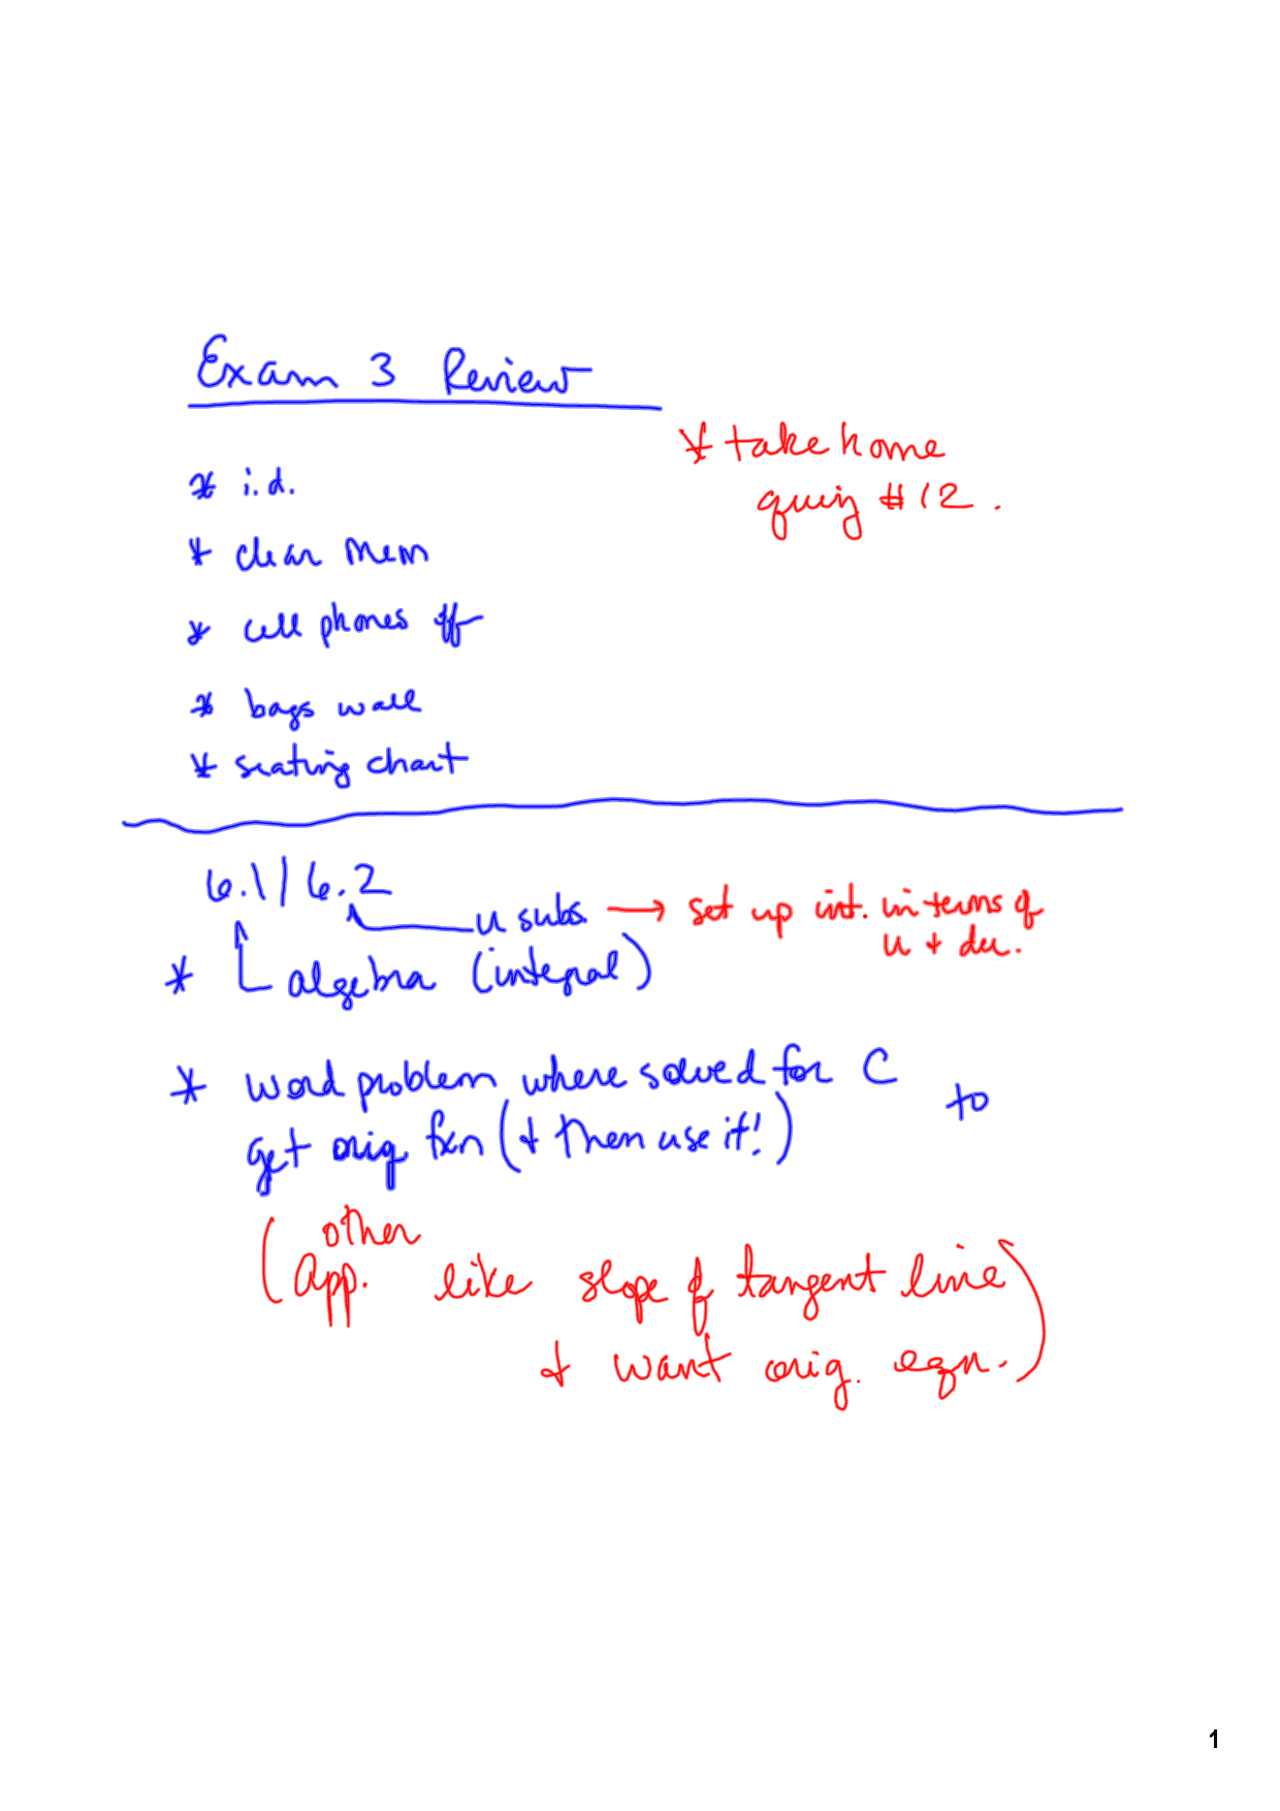 Exam 3 Review
* take home
quiz #12.
* i.d.
* clear mem
* cell phones off
* bags wall
* seating chart
6.1/6.2
u subs. → set up int. in terms of
u + du.
* algebra (integral)
* word problem where solved for C to
get orig fxn (+ then use it!)
(other
app. like slope of tangent line
+ want orig. eqn.)
1